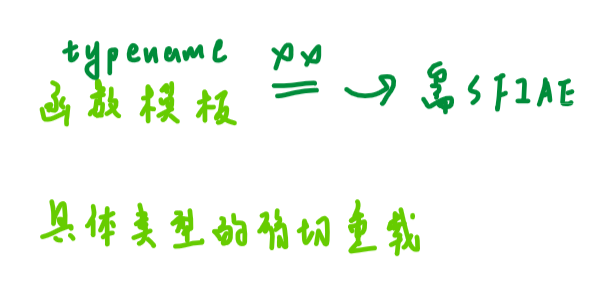 typename xx
函数模板 → 需SFIAE
具体类型的确切重载